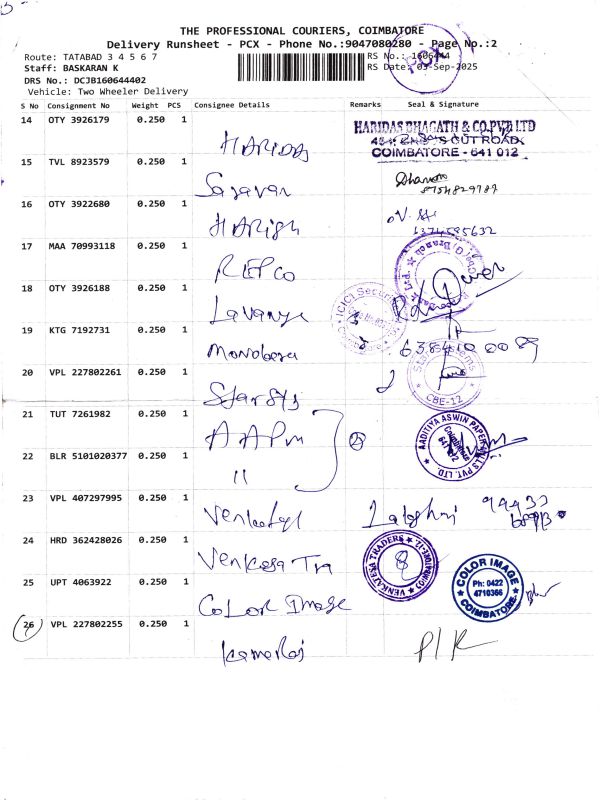 THE PROFESSIONAL COURIERS, COIMBATORE
Delivery Runsheet - PCX - Phone No.:9047080280 - Page No.:2
Route: TATABAD 3 4 5 6 7
RS No.: 1606444
Staff: BASKARAN K
RS Date: 03-Sep-2025
PCX
DRS No.: DCJB160644402
Vehicle: Two Wheeler Delivery
S No Consignment No Weight PCS Consignee Details Remarks Seal & Signature
14 OTY 3926179 0.250 1 HARIDAS
HARIDAS BHAGATH & CO.PVT.LTD
COIMBATORE - 641 012
15 TVL 8923579 0.250 1 Saravan
16 OTY 3922680 0.250 1 HARish
17 MAA 70993118 0.250 1 REPCO
18 OTY 3926188 0.250 1 Lavanya
ICICI Secur
19 KTG 7192731 0.250 1
20 VPL 227802261 0.250 1 Starsys
CBE-12
21 TUT 7261982 0.250 1 AAPM
22 BLR 5101020377 0.250 1 "
AADITIYA ASWIN PAPER MILLS PVT. LTD.
Coimbatore
641 012
23 VPL 407297995 0.250 1
24 HRD 362428026 0.250 1 Venkesa Tra
VENKATESA TRADERS COIMBATORE-12
25 UPT 4063922 0.250 1 COLOR Image
COLOR IMAGE
Ph: 0422
4710366
COIMBATORE
26 VPL 227802255 0.250 1 Kamaraj